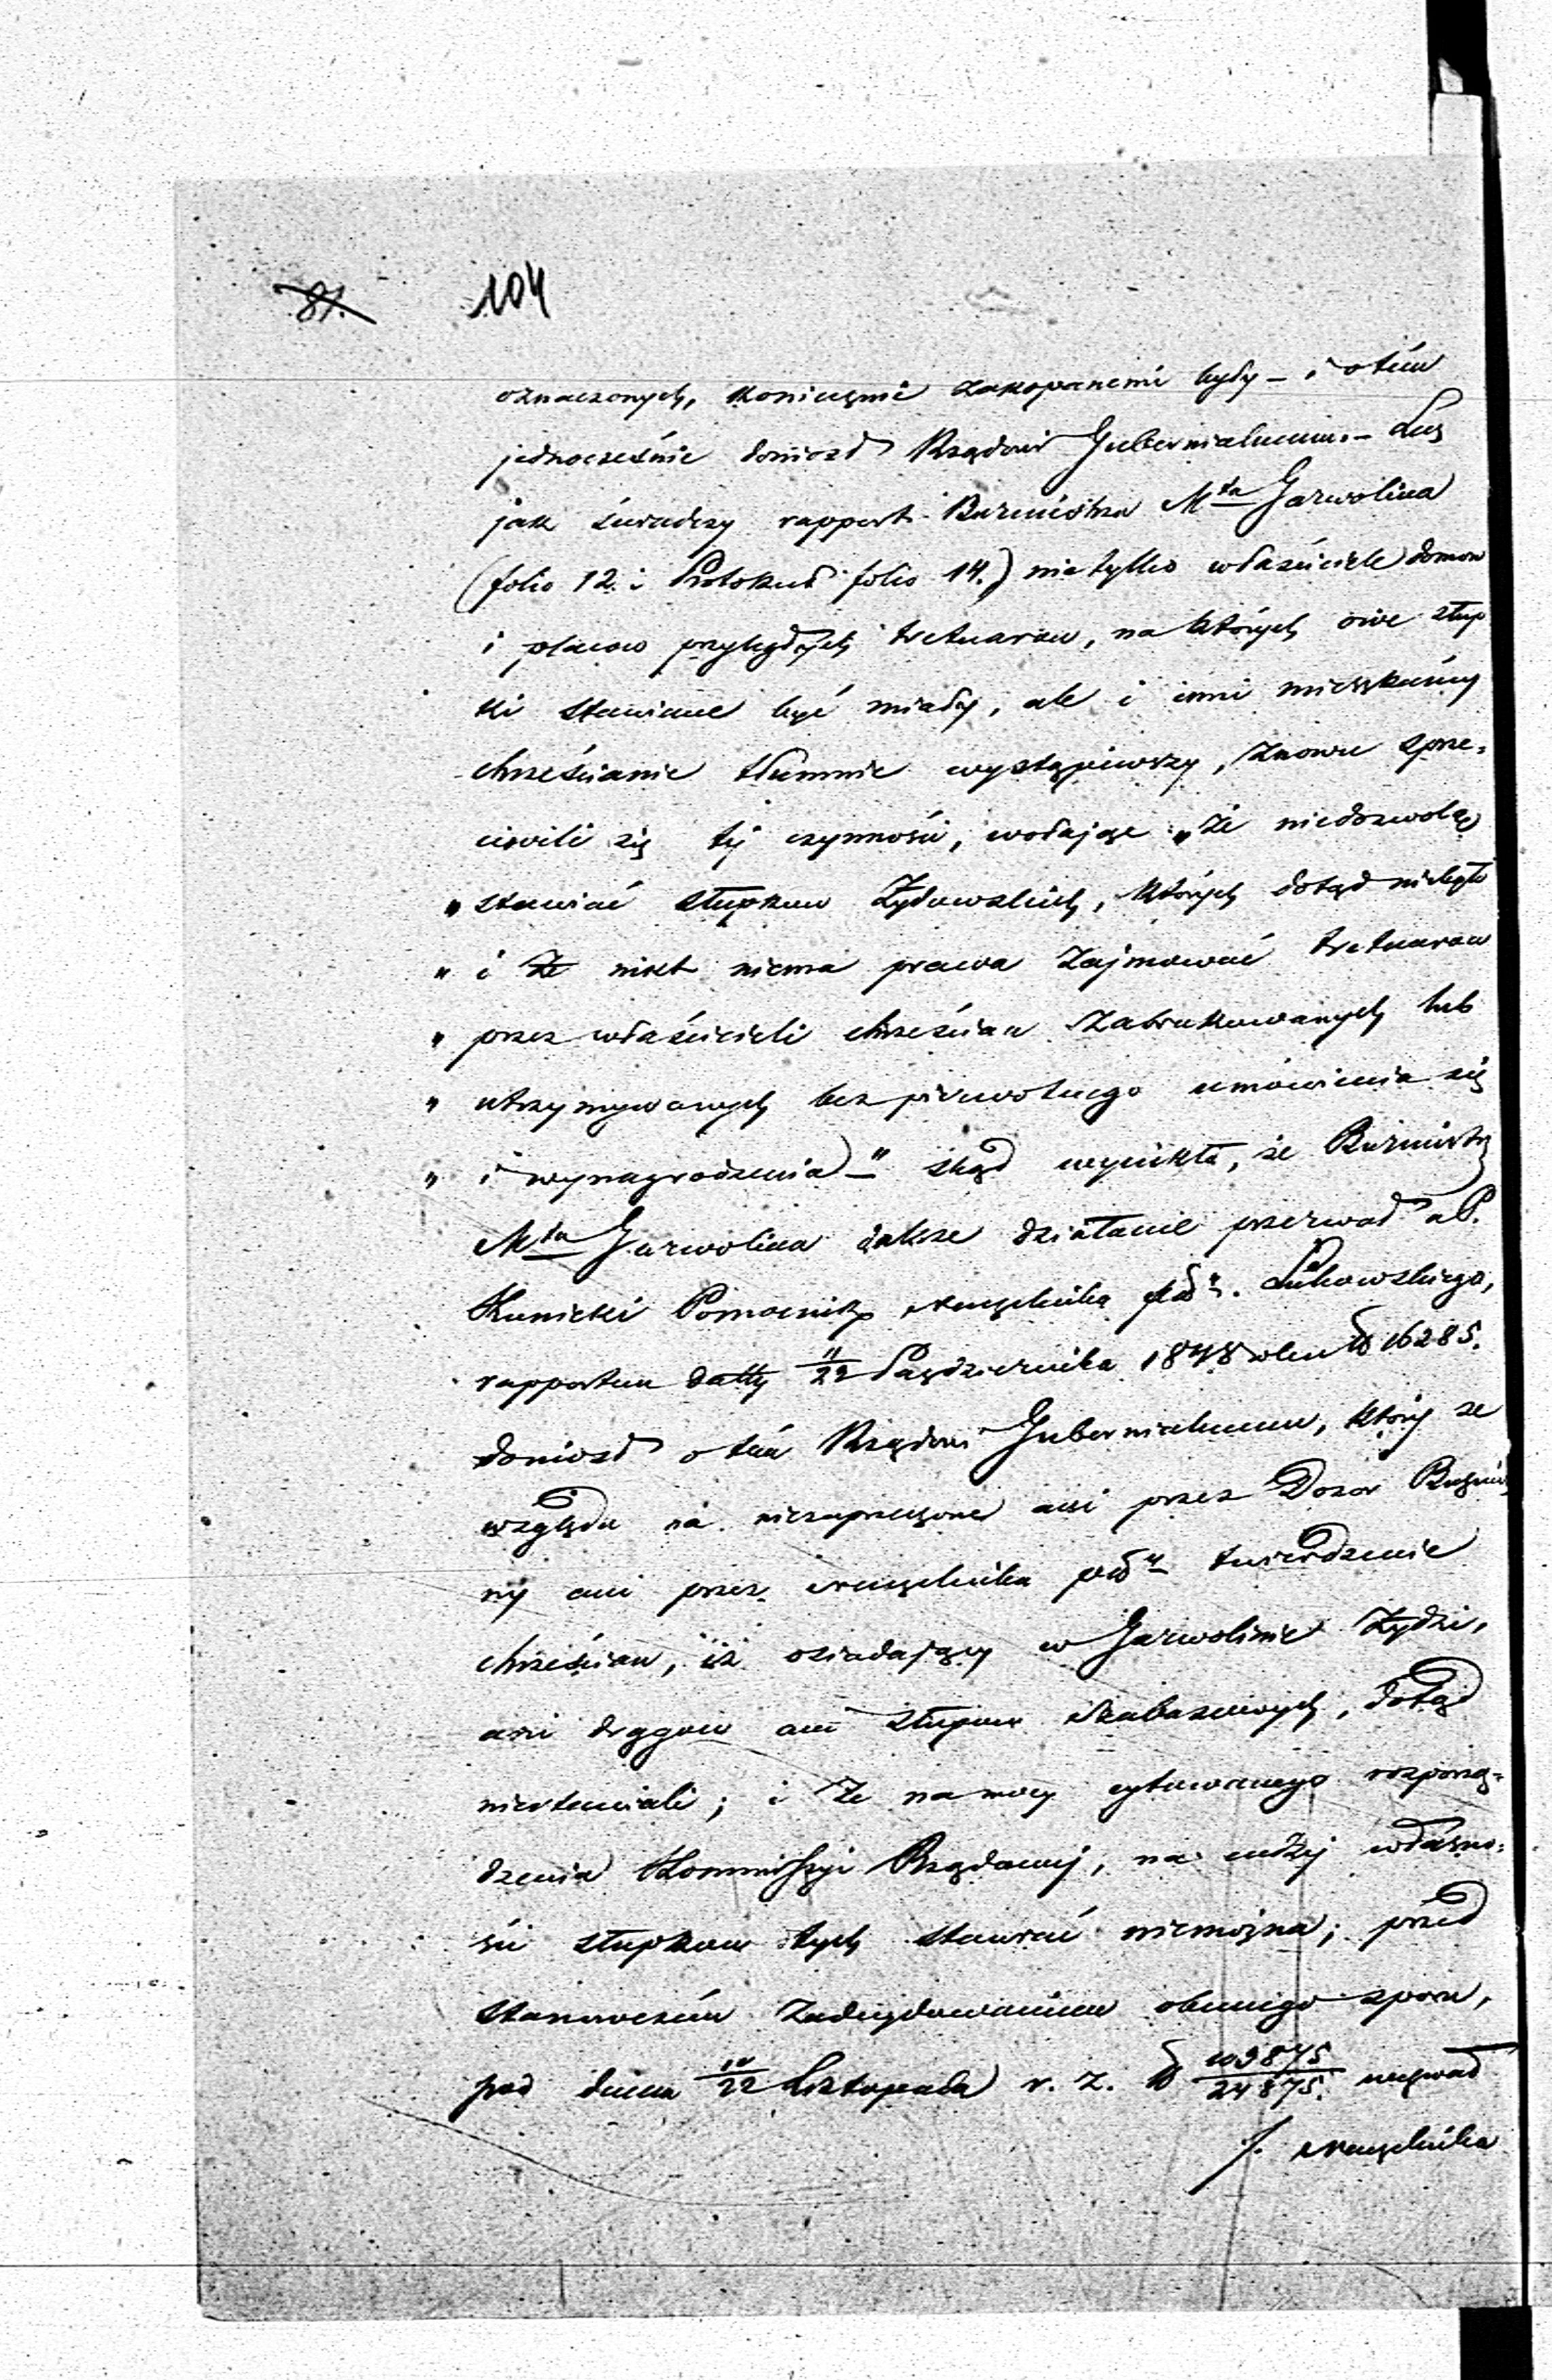 81. 104
oznaczonych, koniecznie zakopanemi były – i o tém
jednocześnie doniósł Rządowi Gubernialnemu. – Lecz
jak świadczy rapport Burmistrza Mta Garwolina
(folio 12. i Protokuł folio 14.) nietylko właściciele domow
i placow przyległych tretuarow, na których owe słup
ki stawiane być miały, ale i inni mieszkańcy
chrześcianie tłumnie wystąpiwszy, znowu sprze-
ciwili się téj czynności, wołając „że niedozwolą
„ stawiać słupkow Żydowskich, których dotąd niebyło
„ i że nikt niema prawa zajmować tretuarow
„ przez właścicieli chrześcian zabrukowanych lub
„ utrzymywanych bez pierwotnego umówienia się
„ i wynagrodzenia –" skąd wynikło, że Burmistrz
Mta Garwolina dalsze działanie przerwał a P.
Kunicki Pomocnik Naczelnika ptu Łukowskiego,
rapportem datty 11/22 Października 1848 roku N 16285.
doniósł o tém Rządowi Gubernialnemu, który ze
względu na niezaprzeczone ani przez Dozor Bóżni-
ny ani przez Naczelnika ptu twierdzenie
chrześcian, iż osiadający w Garwolinie Żydzi,
ani drągow ani słupow szabasowych, dotąd
niestawiali; i że na mocy cytowanego rozporzą-
dzenia Kommissyi Rządowej, na cudzej własno-
ści słupkow tych stawiać niemożna; przed
stanowczém zadecydowaniem obecnego sporu,
pod dniem 10/22 Listopada r. z. N 109875/24875. wezwał
J. Naczelnika